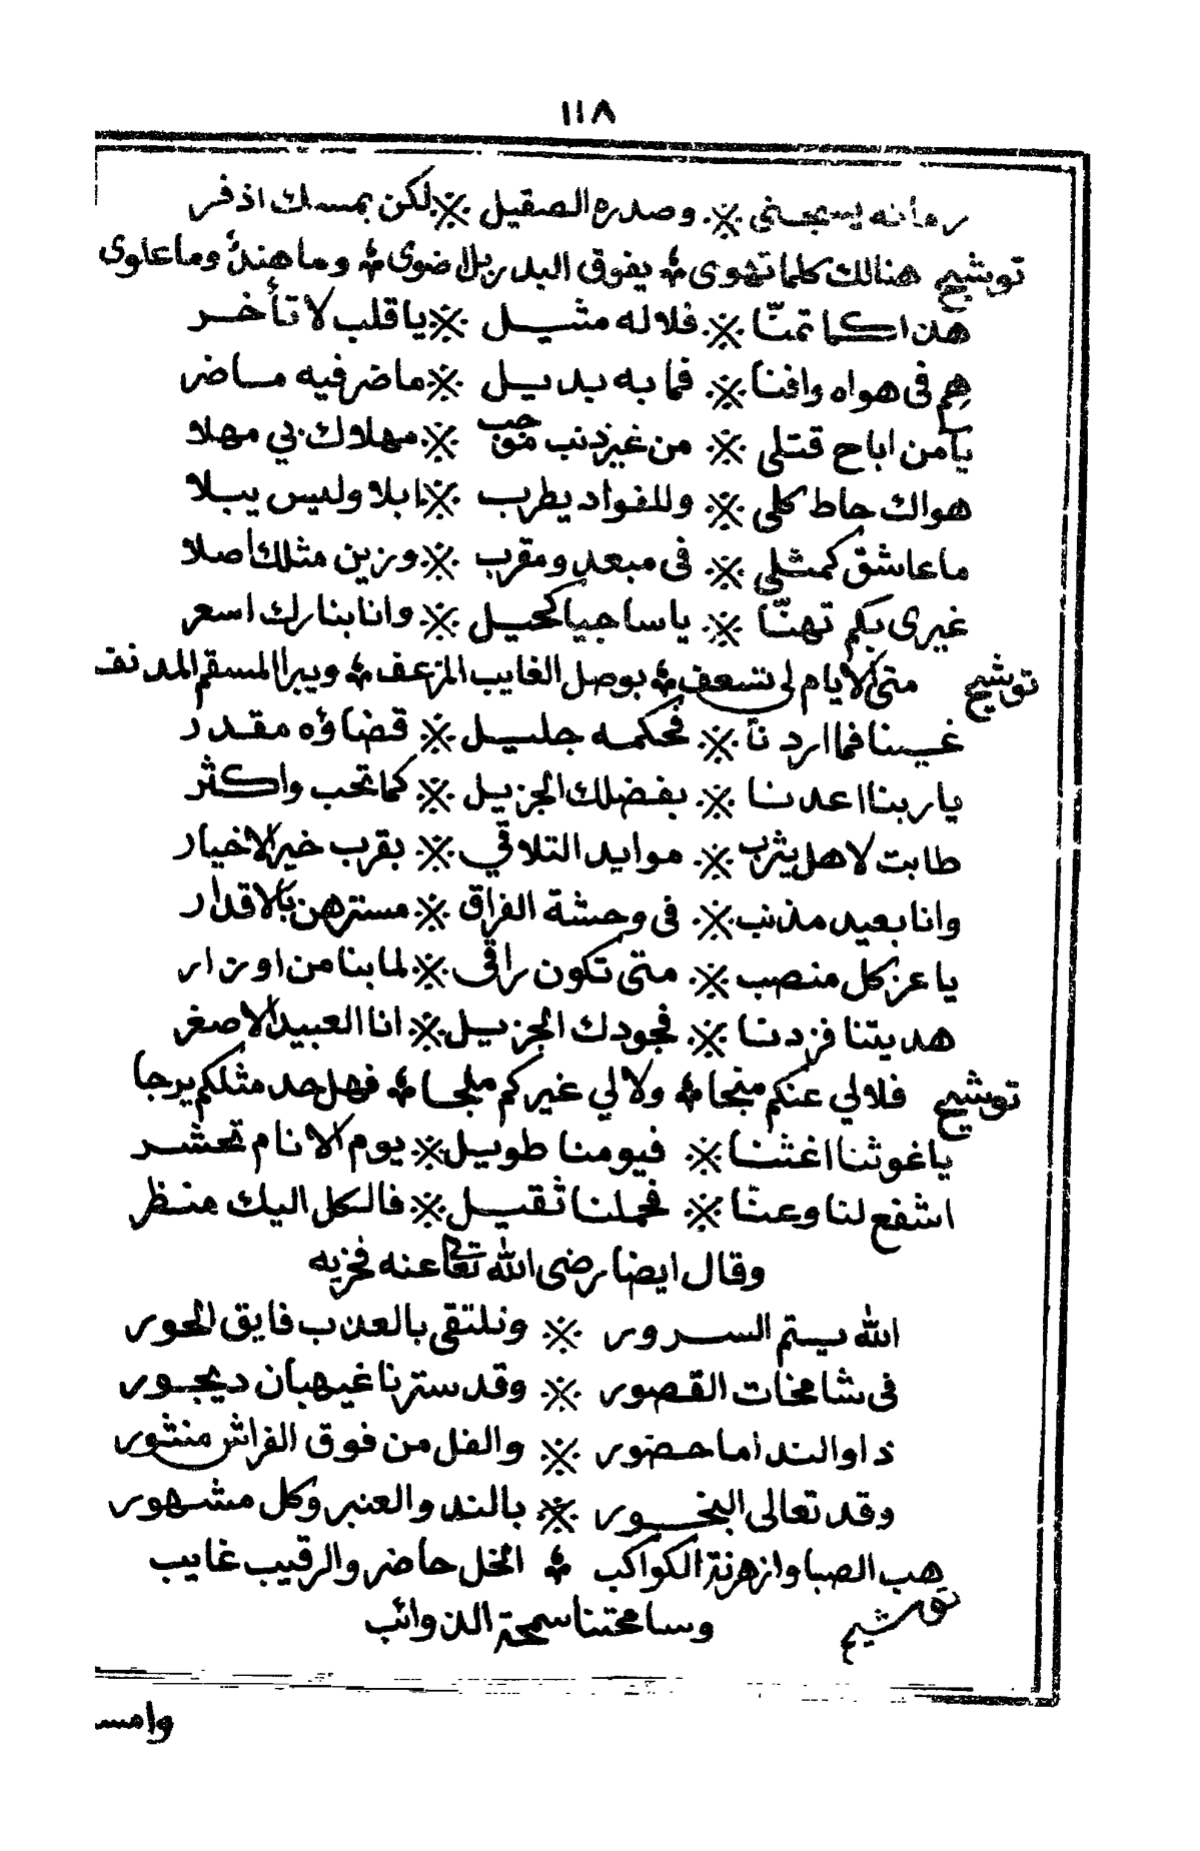 ١١٨
رمانه يسبجني ※ وصدره الصقيل ※ لكن بمسك اذفر
توشيح هنالك كلما تهوى ؞ يفوق البدر بل اضوى ؞ وما هندٌ وما علوى
هذا كما تمنّا ※ فلا له مثيل ※ يا قلب لا تأخر
هم في هواه وافنا ※ فما به بديل ※ ما ضر فيه ساضر
يا من اباح قتلي ※ من غير ذنب موجب ※ مهلا ك بي مهلا
هواك حاط كلي ※ وللفواد يطرب ※ ابلا وليس يبلا
ما عاشق كمثلي ※ في مبعد ومقرب ※ وزين مثلك أصلا
غيري بكم تهنّا ※ يا ساجيا كحيل ※ وانا بنارك اسعر
توشيح متى الايام لي تسعف ؞ بوصل الغايب المزعف ؞ ويبرا المسقم المدنف
غبنا فما اردنا ※ فحكمه جليل ※ قضاؤه مقدر
يا ربنا اعدنا ※ بفضلك الجزيل ※ كما تحب واكثر
طابت لاهل يثرب ※ موايد التلاقي ※ بقرب خير الاخيار
وانا بعيد مذنب ※ في وحشة الفراق ※ مسترهن بالاقدار
يا عز كل منصب ※ متى تكون راقي ※ لما بنا من اوزار
هديتنا فزدنا ※ فجودك الجزيل ※ انا العبيد الاصغر
توشيح فلا لي عنكم منجا ؞ ولا لي غيركم ملجا ؞ فهل حد مثلكم يرجا
يا غوثنا اغثنا ※ فيومنا طويل ※ يوم الانام تحشر
اشفع لنا وعنّا ※ فحملنا ثقيل ※ فالكل اليك منظر
وقال ايضا رضى الله تعالى عنه فخزيه
الله يتم السرور ※ ونلتقي بالعذب فايق الحور
في شامخات القصور ※ وقد سترنا غيهبان ديجور
ذا والندا ما حضور ※ والفل من فوق الفراش منثور
وقد تعالى البخور ※ بالند والعنبر وكل مشهور
هب الصبا وازهرة الكواكب ؞ الخل حاضر والرقيب غايب
توشيح وسامحتنا سمحة الذوائب
وامس